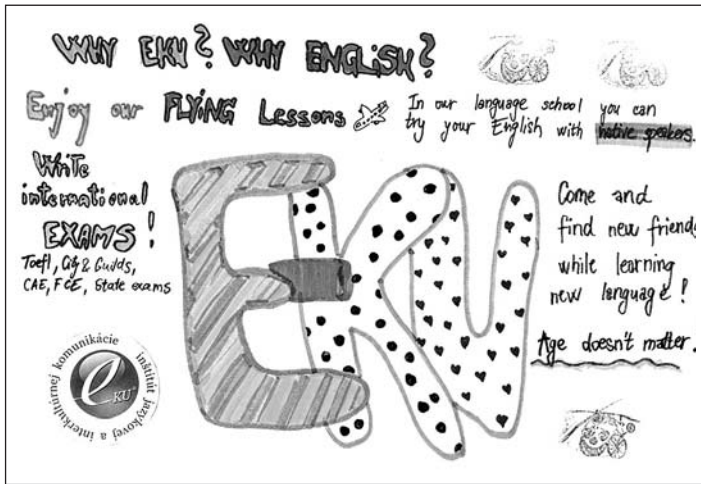 WHY EKU? WHY ENGLISH?
Enjoy our FLYING Lessons
In our language school you can
try your English with native speakers.
Write
international
EXAMS!
Toefl, City & Guilds,
CAE, FCE, State exams
EKU
Come and
find new friends
while learning
new language!
Age doesn't matter.
inštitút jazykovej a interkultúrnej komunikácie
eKU